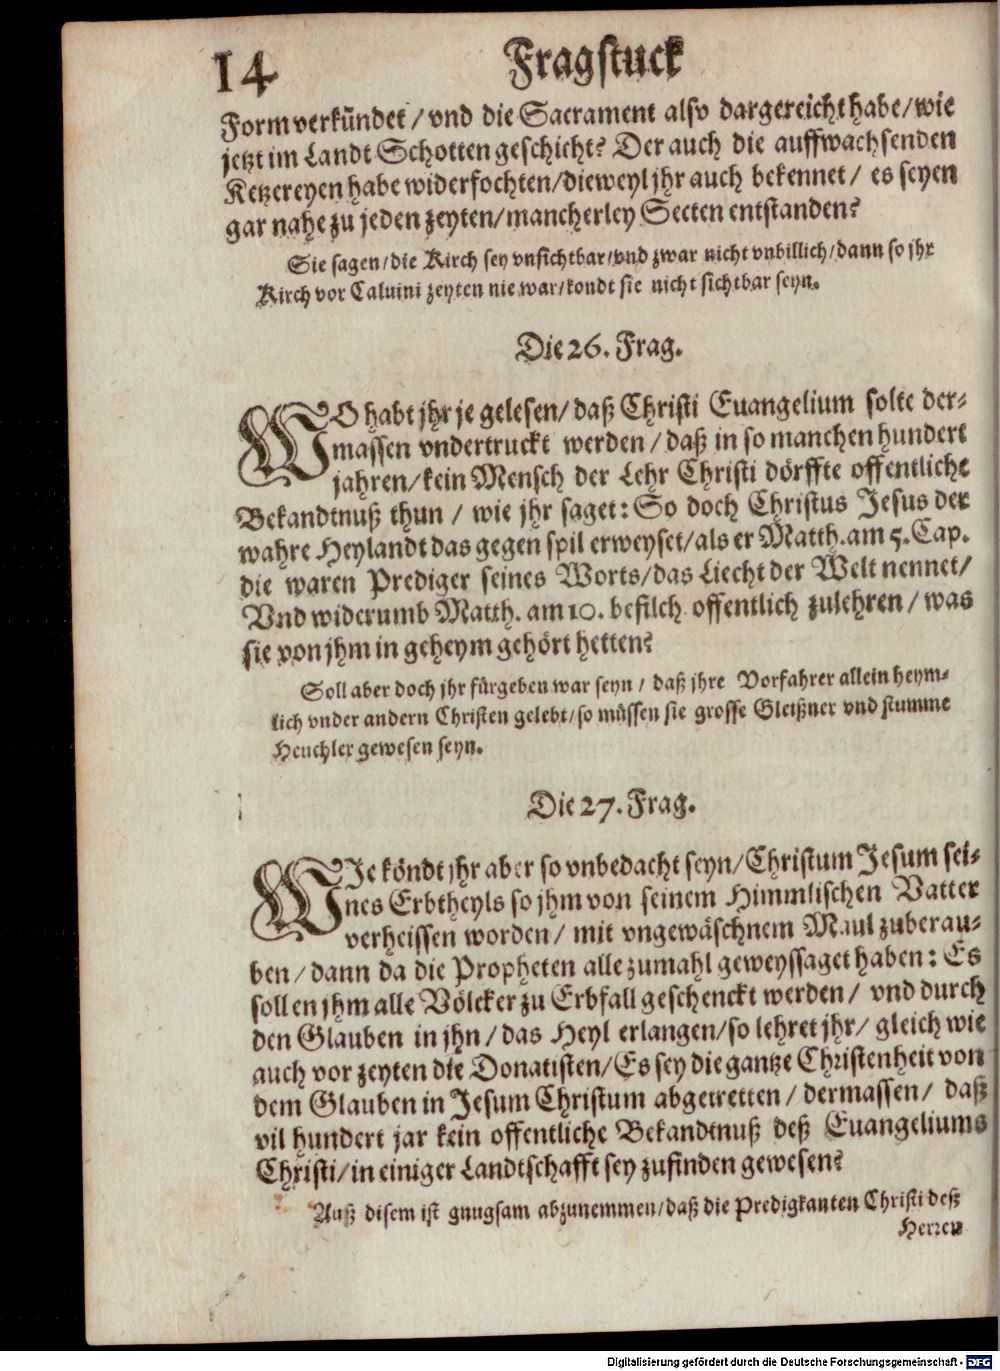 14 Fragstuck
Form verkündet / vnd die Sacrament also dargereicht habe / wie
jetzt im Landt Schotten geschicht? Der auch die auffwachsenden
Ketzereyen habe widerfochten / dieweyl jhr auch bekennet / es seyen
gar nahe zu jeden zeyten / mancherley Secten entstanden?
Sie sagen / die Kirch sey vnsichtbar / vnd zwar nicht vnbillich / dann so jhr
Kirch vor Caluini zeyten nie war / kondt sie nicht sichtbar seyn.
Die 26. Frag.
WO habt jhr je gelesen / daß Christi Euangelium solte der-
massen vndertruckt werden / daß in so manchen hundert
jahren / kein Mensch der Lehr Christi dörffte offentliche
Bekandtnuß thun / wie jhr saget: So doch Christus Jesus der
wahre Heylandt das gegen spil erweyset / als er Matth. am 5. Cap.
die waren Prediger seines Worts / das Liecht der Welt nennet /
Vnd widerumb Matth. am 10. befilch offentlich zulehren / was
sie von jhm in geheym gehört hetten?
Soll aber doch jhr fürgeben war seyn / daß jhre Vorfahrer allein heym-
lich vnder andern Christen gelebt / so müssen sie grosse Gleißner vnd stumme
Heuchler gewesen seyn.
Die 27. Frag.
WJe köndt jhr aber so vnbedacht seyn / Christum Jesum sei-
nes Erbtheyls so jhm von seinem Himmlischen Vatter
verheissen worden / mit vngewäschnem Maul zuberau-
ben / dann da die Propheten alle zumahl geweyssaget haben: Es
sollen jhm alle Völcker zu Erbfall geschenckt werden / vnd durch
den Glauben in jhn / das Heyl erlangen / so lehret jhr / gleich wie
auch vor zeyten die Donatisten / Es sey die gantze Christenheit von
dem Glauben in Jesum Christum abgetretten / dermassen / daß
vil hundert jar kein offentliche Bekandtnuß deß Euangeliums
Christi / in einiger Landtschafft sey zufinden gewesen?
Auß disem ist gnugsam abzunemmen / daß die Predigkanten Christi deß
Herren
Digitalisierung gefördert durch die Deutsche Forschungsgemeinschaft - DFG